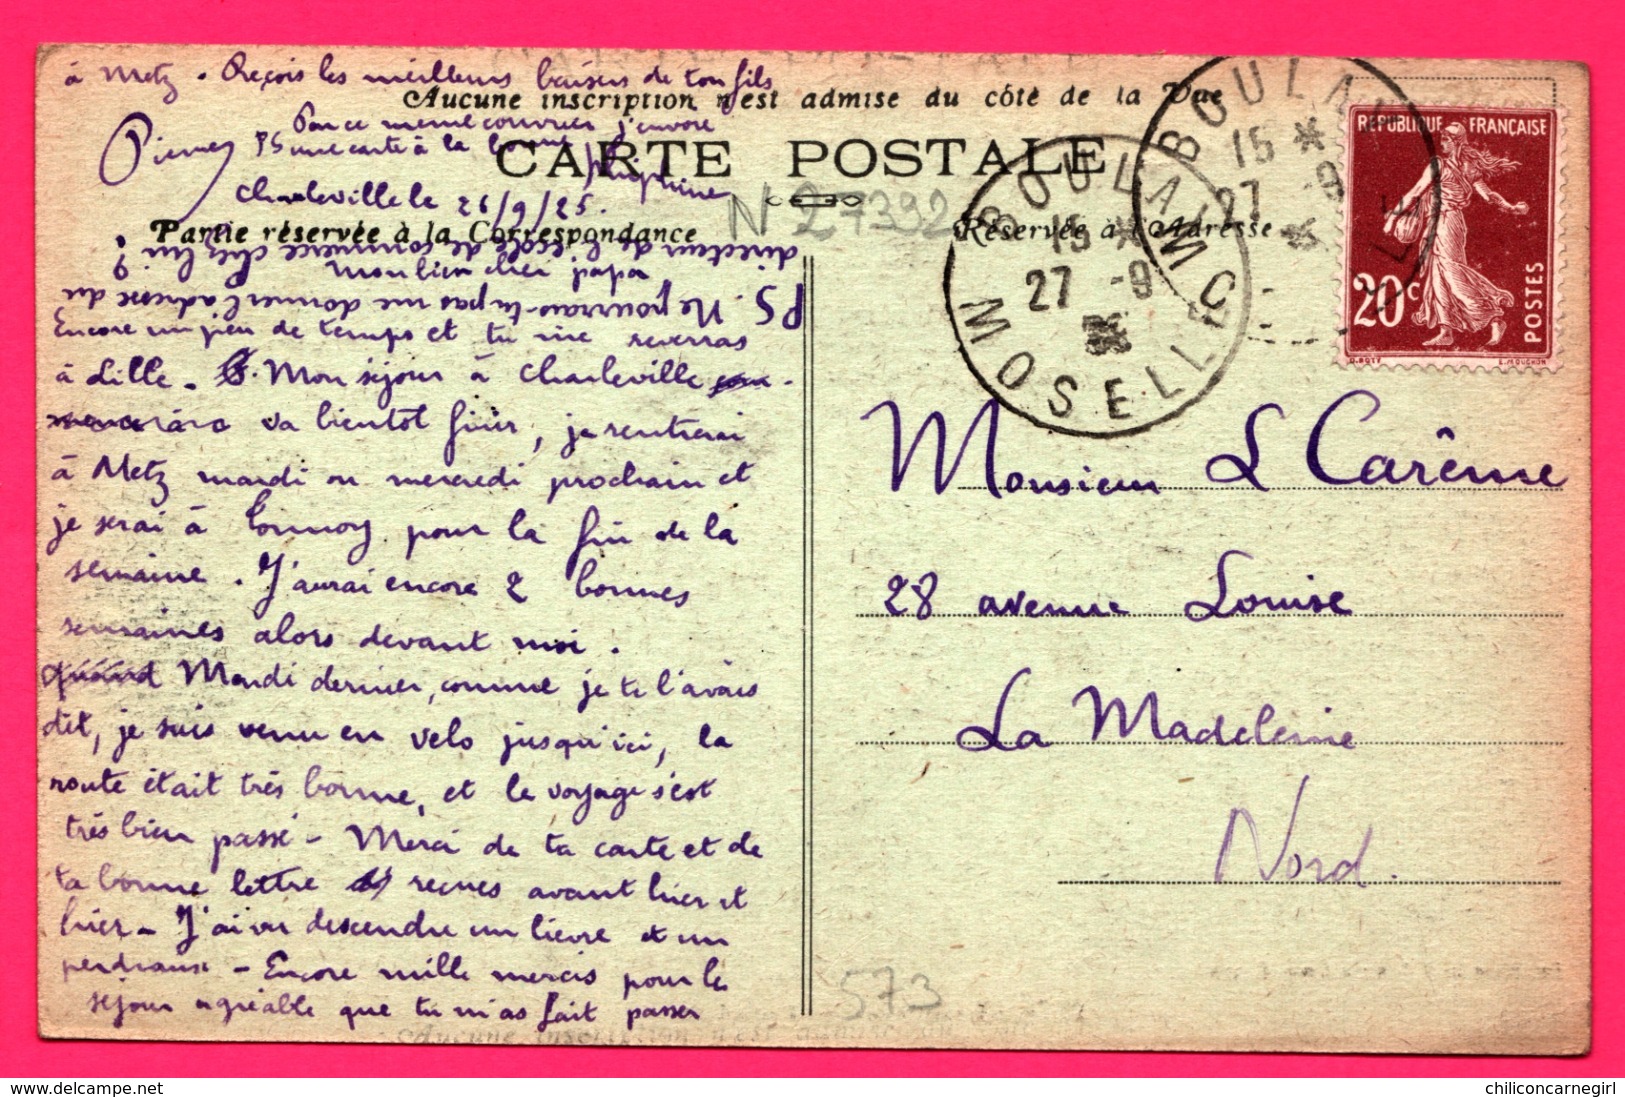 à Metz. Reçois les meilleurs baisers de ton fils
Aucune inscription n'est admise du côté de la Vue
Pierre
Par ce même courrier j'envoie
PS une carte à la bonne
CARTE POSTALE
Charleville le 26/9/25.
N 27392
Partie réservée à la Correspondance
Réservée à l'Adresse
PS. Ne pourrais-tu pas me donner l'adresse du
directeur de l'école de commerce chez lui ?
Mon bien cher papa
Encore un peu de temps et tu me reverras
à Lille. Mon séjour à Charleville
va bientôt finir, je rentrerai
à Metz mardi ou mercredi prochain et
je serai à pour la fin de la
semaine. J'aurai encore 2 bonnes
semaines alors devant moi.
quand Mardi dernier, comme je te l'avais
dit, je suis venu en velo jusqu'ici, la
route était très bonne, et le voyage s'est
très bien passé - Merci de ta carte et de
ta bonne lettre reçues avant hier et
hier - J'ai vu descendre un lièvre et un
perdreaux - Encore mille mercis pour le
séjour agréable que tu m'as fait passer
BOULAY
15 *
27 -9
25
MOSELLE
BOULAY
15 *
27 -9
25
MOSELLE
REPUBLIQUE FRANÇAISE
20c
POSTES
O. ROTY
L. MOUCHON
Monsieur L Carême
28 avenue Louise
La Madeleine
Nord.
573
Aucune inscription n'est
delcampe.net
chiliconcarnegirl